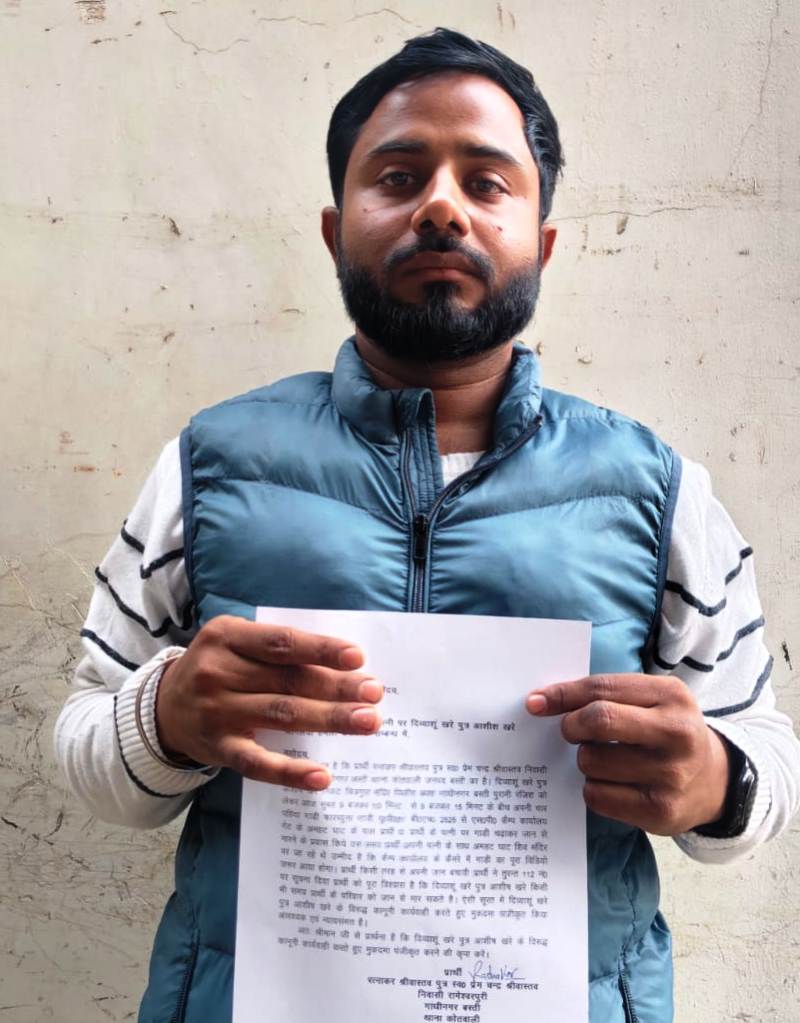 पत्नी पर दिव्यांशू खरे पुत्र आशीश खरे
सम्बन्ध में,
महोदय,
है कि प्रार्थी रत्नाकर श्रीवास्तव पुत्र स्व0 प्रेम चन्द्र श्रीवास्तव निवासी
थाना कोतवाली जनपद बस्ती का है। दिव्यांशू खरे पुत्र
गांधीनगर बस्ती पुरानी रंजिश को
लेकर आज सुबह 9 बजकर 10 मिनट से 9 बजकर 15 मिनट के बीच अपनी चार
पहिया गाड़ी 2525 से एस0पी0 कैम्प कार्यालय
गेट के अमहट घाट के पास प्रार्थी व प्रार्थी के पत्नी पर गाडी चढ़ाकर जान से
मारने के प्रयास किये उस समय प्रार्थी अपनी पत्नी के साथ अमहट घाट शिव मंदिर
पर जा रहे थे उम्मीद है कि कैम्प कार्यालय के कैमरे में गाड़ी का पूरा विडियो
जरूर आया होगा। प्रार्थी किसी तरह से अपनी जान बचायी प्रार्थी ने तुरन्त 112 नं0
पर सूचना दिया प्रार्थी को पूरा विश्वास है कि दिव्यांशू खरे पुत्र आशीष खरे किसी
भी समय प्रार्थी के परिवार को जान से मार सकते है। ऐसी सूरत में दिव्यांशू खरे
पुत्र आशीष खरे के विरुद्ध कानूनी कार्यवाही करते हुए मुकदमा पंजीकृत किया
आवश्यक एवं न्यायसंगत है।
अतः श्रीमान जी से प्रार्थना है कि दिव्यांशू खरे पुत्र आशीष खरे के विरुद्ध
कानूनी कार्यवाही करते हुए मुकदमा पंजीकृत करने की कृपा करें।
प्रार्थी
रत्नाकर श्रीवास्तव पुत्र स्व0 प्रेम चन्द्र श्रीवास्तव
निवासी रामेश्वरपुरी
गांधीनगर बस्ती
थाना कोतवाली